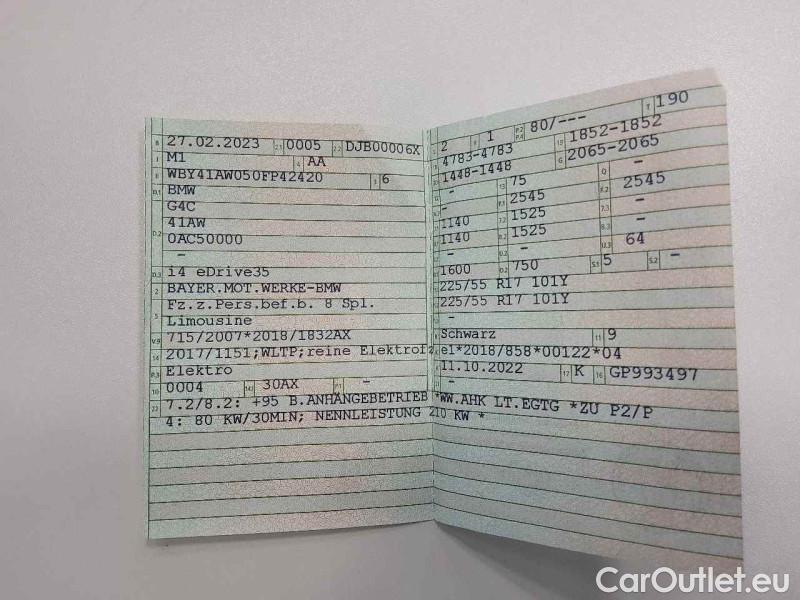 B 27.02.2023 2.1 0005 2.2 DJB00006X
J M1 4 AA
E WBY41AW050FP42420 3 6
D.1 BMW
G4C
41AW
D.2 0AC50000
-
D.3 i4 eDrive35
2 BAYER.MOT.WERKE-BMW
Fz.z.Pers.bef.b. 8 Spl.
5 Limousine
V.9 715/2007*2018/1832AX
14 2017/1151;WLTP;reine Elektrofz
P.3 Elektro
10 0004 14.1 30AX P.1 -
22 7.2/8.2: +95 B.ANHÄNGEBETRIEB *WW.AHK LT.EGTG *ZU P2/P
4: 80 KW/30MIN; NENNLEISTUNG 210 KW *
2 9 1 P.2 P.4 80/--- T 190
4783-4783 19 1852-1852
1448-1448 G 2065-2065
- 13 75 Q -
- F.1 2545 F.2 2545
1140 7.2 1525 7.3 -
1140 8.2 1525 8.3 -
- - U.3 64
1600 O.2 750 S.1 5 S.2 -
225/55 R17 101Y
225/55 R17 101Y
-
R Schwarz 11 9
K e1*2018/858*00122*04
6 11.10.2022 17 K 16 GP993497
CarOutlet.eu